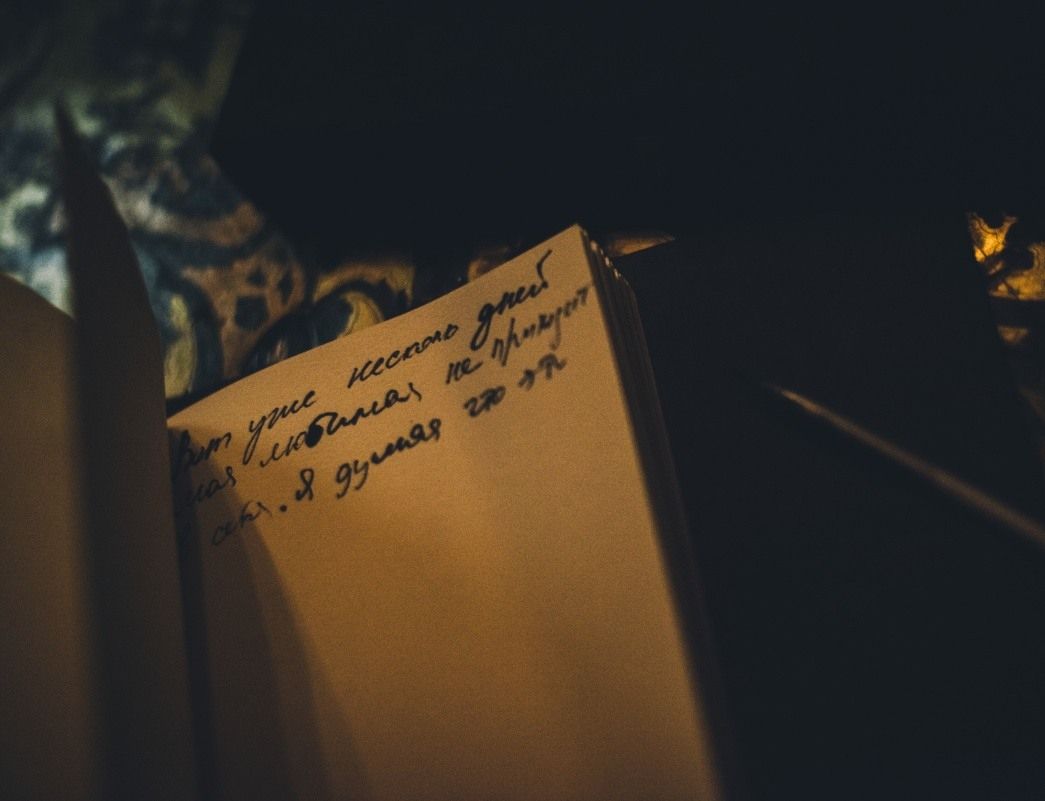 Вот уже несколь дней
моя любимая не приходит
в себя. Я думая что это